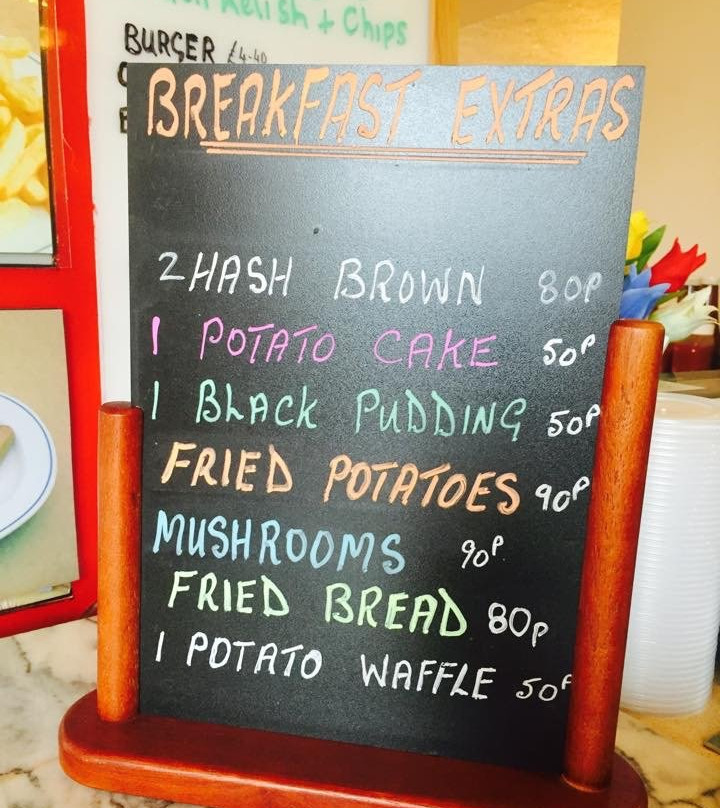 Relish + Chips
BURGER £4.40
BREAKFAST EXTRAS
2 HASH BROWN 80p
1 POTATO CAKE 50p
1 BLACK PUDDING 50p
FRIED POTATOES 90p
MUSHROOMS 90p
FRIED BREAD 80p
1 POTATO WAFFLE 50p